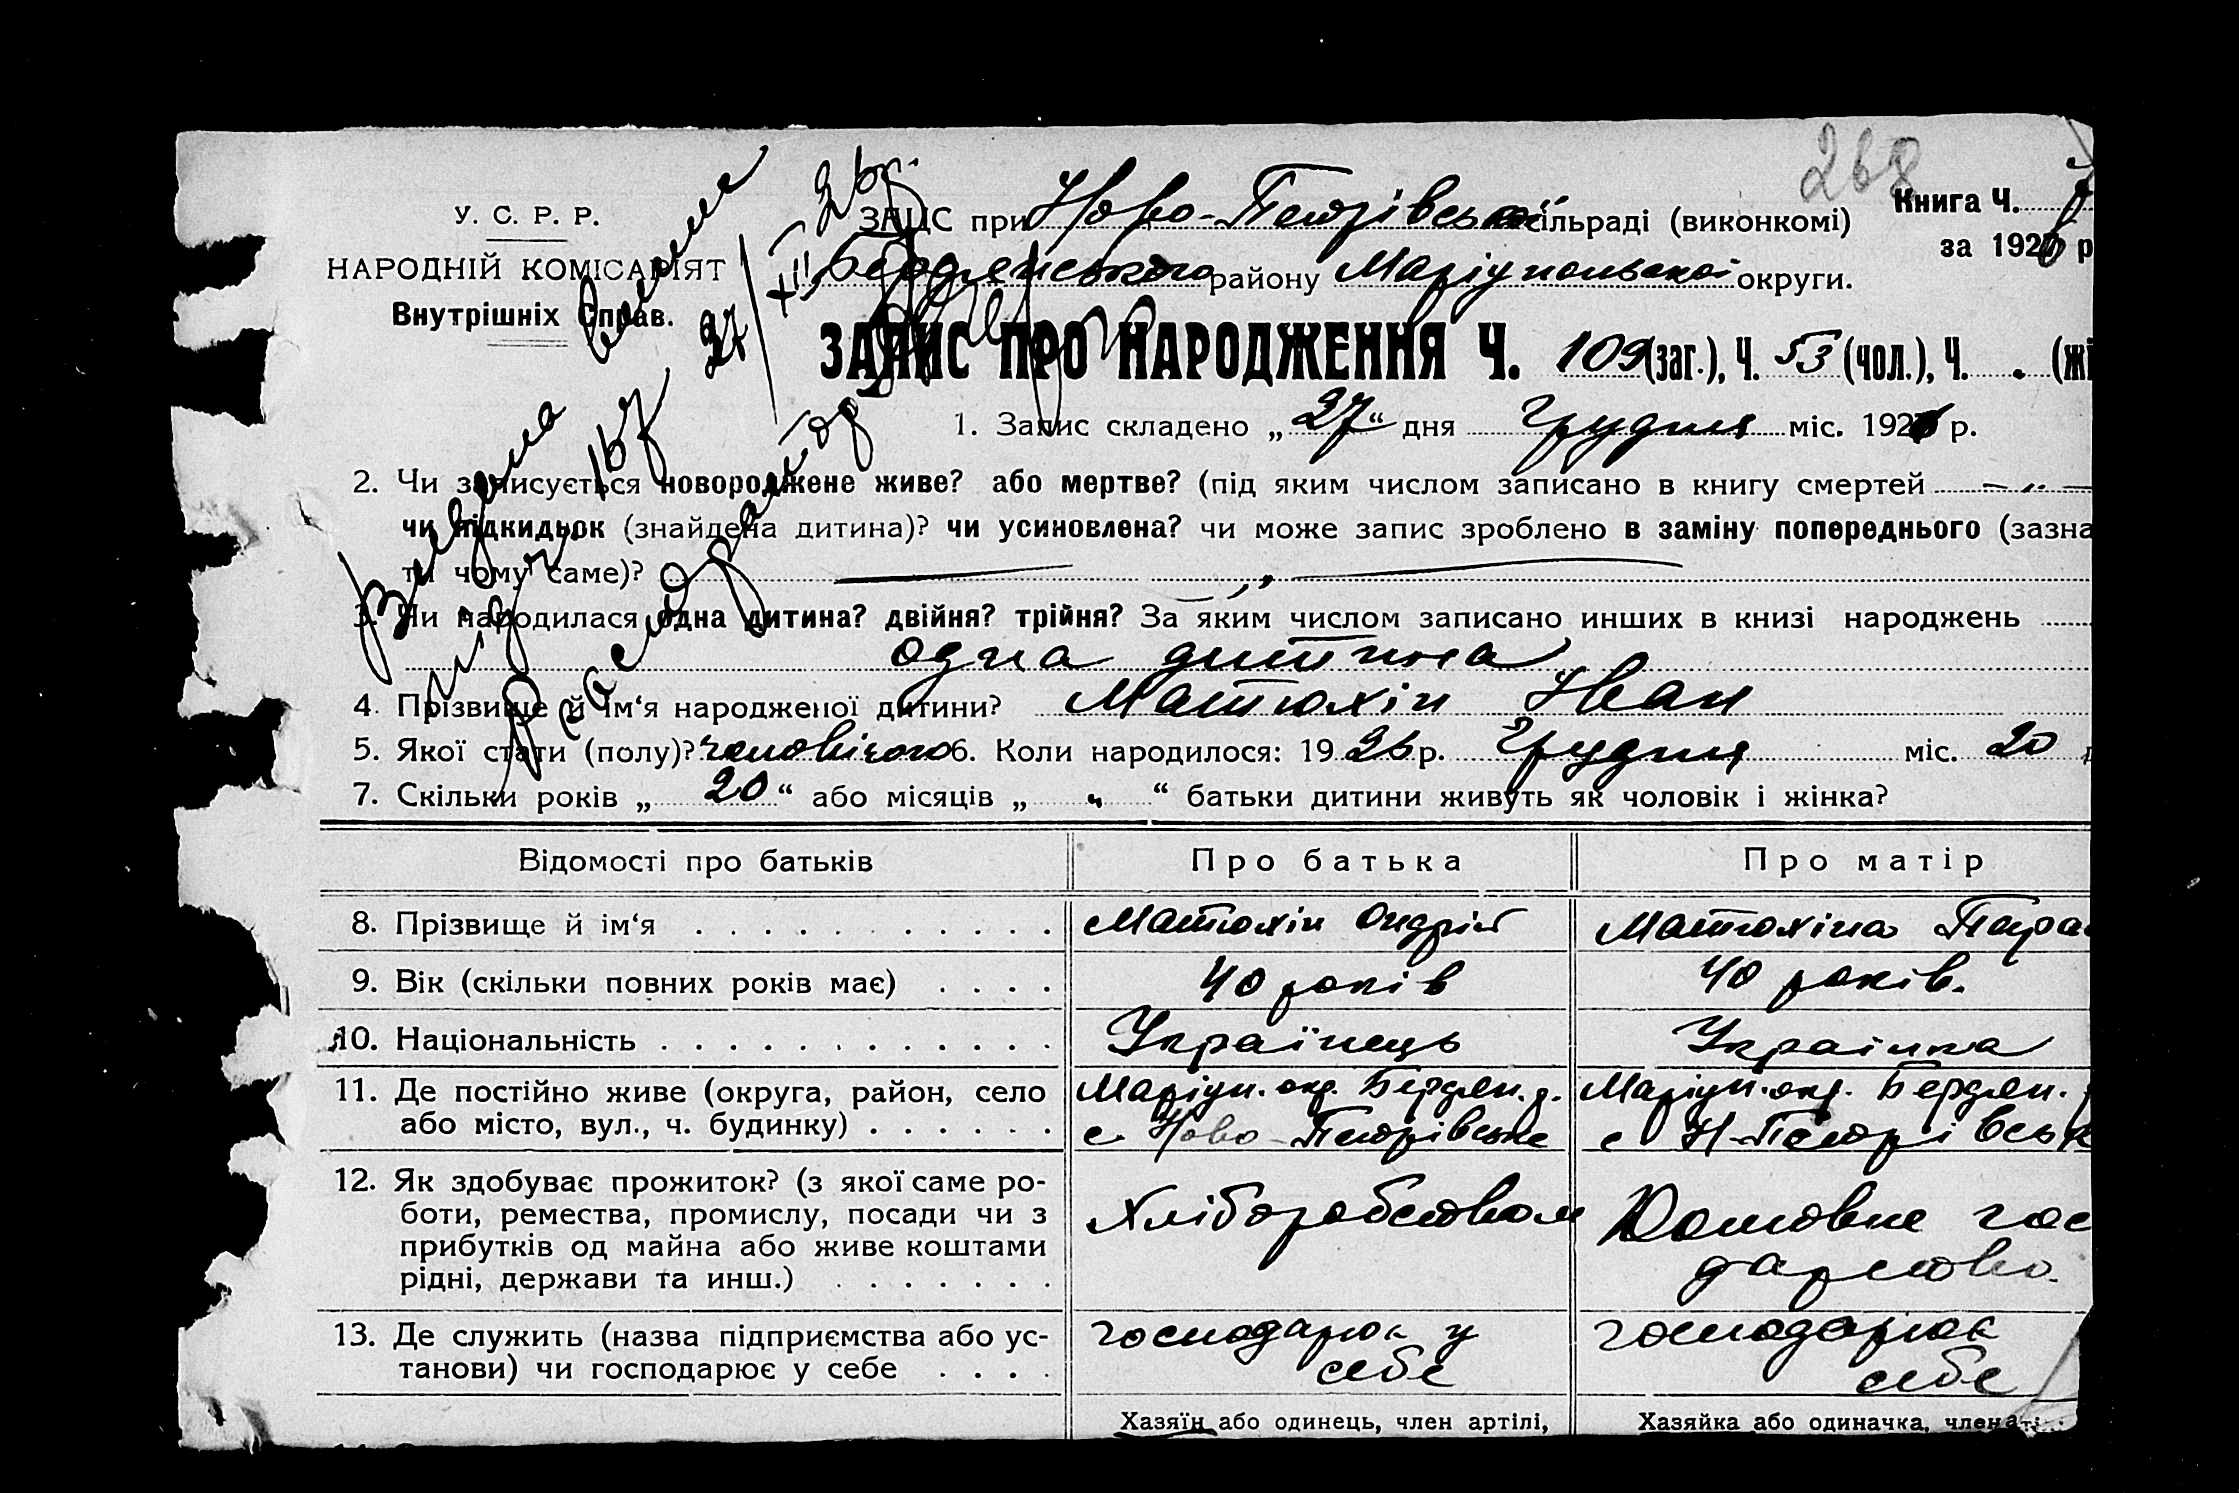 268
У. С. Р. Р.
НАРОДНІЙ КОМІСАРІЯТ
Внутрішніх Справ.
ЗАЦС при Ново-Петрівській сільраді (виконкомі)
Книга Ч.
за 1926 р
Бердянського району Маріупольської округи.
ЗАПИС ПРО НАРОДЖЕННЯ Ч. 109 (заг.), Ч. 53 (чол.), Ч. (жі
1. Запис складено „27“ дня Грудня міс. 1926 р.
2. Чи записується новороджене живе? або мертве? (під яким числом записано в книгу смертей — „ —
чи підкидьок (знайдена дитина)? чи усиновлена? чи може запис зроблено в заміну попереднього (зазна
ти чому саме)? — „ —
3. Чи народилася одна дитина? двійня? трійня? За яким числом записано инших в книзі народжень
одна дитина
4. Прізвище й ім‘я народженої дитини? Матюхін Иван
5. Якої стати (полу)? чоловічого 6. Коли народилося: 1926 р. Грудня міс. 20
7. Скільки років „20“ або місяців „ „ “ батьки дитини живуть як чоловік і жінка?
Видана
выпис
27/XII 26р.
Відомості про батьків
Про батька
Про матір
8. Прізвище й ім‘я
Матюхін Андрій
Матюхіна Пара
9. Вік (скільки повних років має)
40 років
40 років.
10. Національність
Українець
Украінка
11. Де постійно живе (округа, район, село
або місто, вул., ч. будинку)
Маріуп. окр. Бердян. р.
с Ново-Петрівське
Маріуп. окр. Бердян. р
с Н-Петрівськ
12. Як здобуває прожиток? (з якої саме ро-
боти, ремества, промислу, посади чи з
прибутків од майна або живе коштами
рідні, держави та инш.)
Хліборобством
Домовне гос
дарство.
13. Де служить (назва підприємства або ус-
танови) чи господарює у себе
господарює у
себе
господарює
себе
Хазяїн або одинець, член артілі,
Хазяйка або одиначка, член